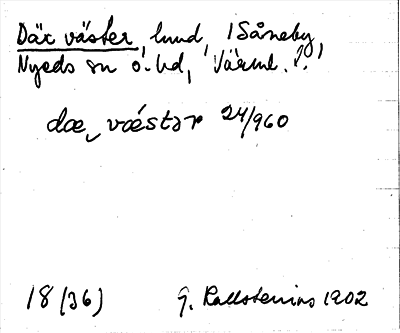 Där väster, lund, i Såneby,
Nyeds sn o. hd, Värml.
dæ‿ vǽstər 24/960
18 (36) G. Kallstenius 1902